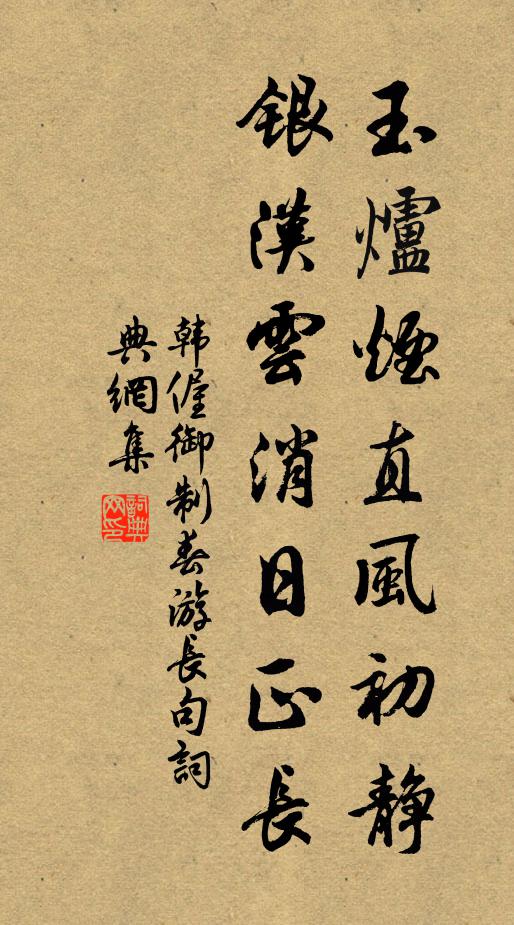 玉爐煙直風初靜
銀漢雲消日正長
韩偓御制春游長句詞
典網集
詞典網印